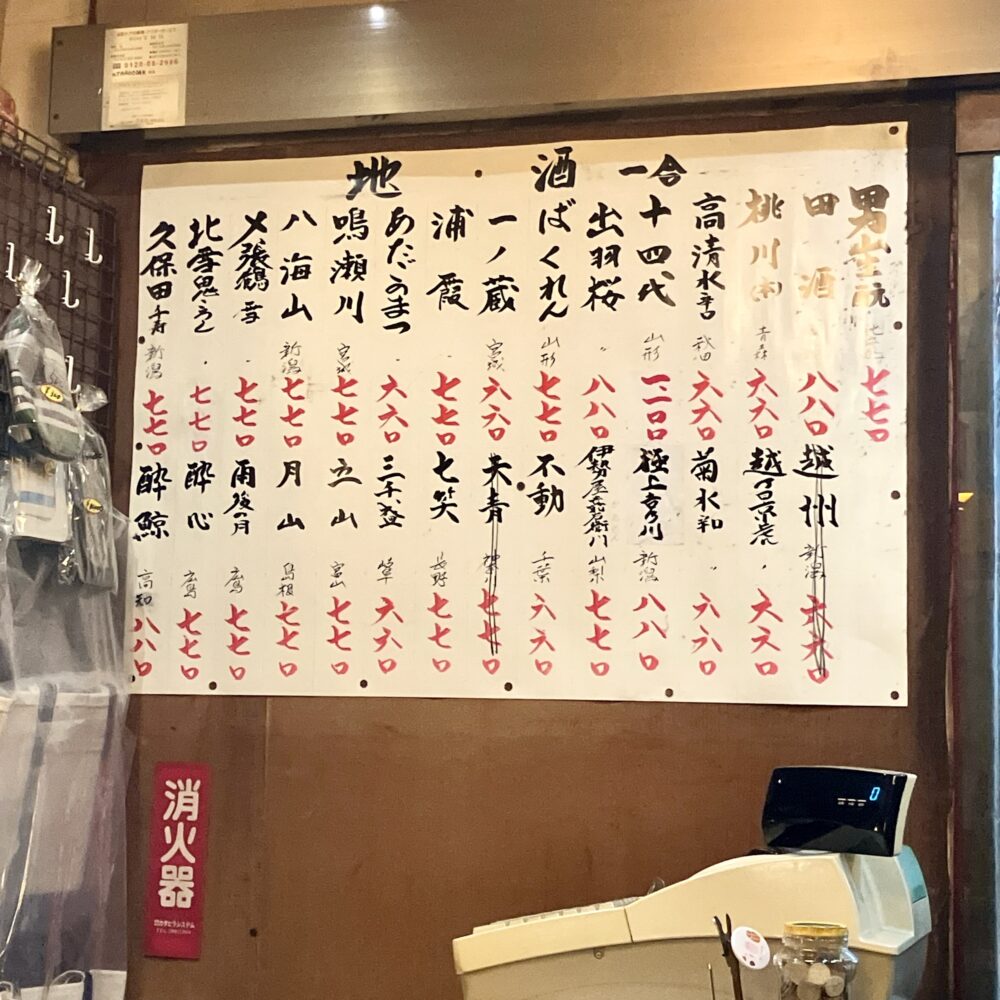 0120-08-2686
地酒 一合
男山生酛 七七〇
田酒 八八〇
桃川(木) 青森 六六〇
高清水辛口 秋田 六六〇
十四代 山形 一二〇〇
出羽桜 〃 八八〇
ばくれん 山形 七七〇
一ノ蔵 宮城 六六〇
浦霞 〃 七七〇
あたごのまつ 〃 六六〇
鳴瀬川 宮城 七七〇
八海山 新潟 七七〇
〆張鶴 雪 〃 七七〇
北雪鬼ころし 〃 七七〇
久保田千寿 新潟 七七〇
越州 新潟 六六〇
越乃景虎 〃 六六〇
菊水辛口 〃 六六〇
極上吉乃川 新潟 八八〇
伊勢屋 山梨 七七〇
不動 千葉 六六〇
天青 七七〇
七笑 長野 七七〇
三千盛 岐阜 六六〇
立山 富山 七七〇
月山 島根 七七〇
雨後の月 広島 七七〇
酔心 広島 七七〇
酔鯨 高知 八八〇
消火器
0